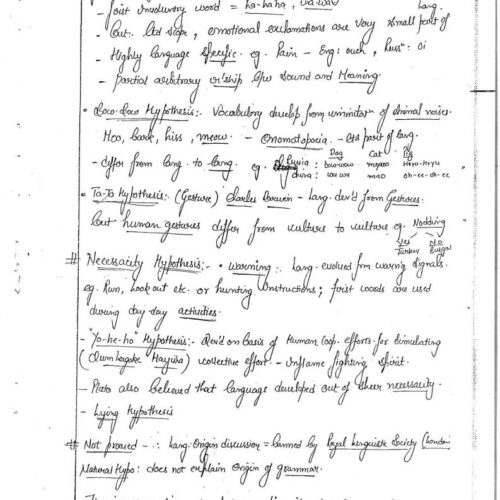 - First involuntary word = ha-ha-ha, wa-waw lang.
- But. Ltd scope, emotional exclamations are very small part of
- Highly language specific. eg. Pain - Eng: ouch, Russ: oi
- partial arbitrary r/ship b/w sound and Meaning.
• Coco-Coco Hypothesis:- Vocabulary develop from imitatn of animal noises.
Moo, bark, hiss, meow. - Onomatopoeia - Ltd part of lang.
Dog Cat Pig
- differ from lang to lang eg. Russia : bow-wow myaoo
China : wu wu mao oh-ee-oh-ee
• Ta-Ta Hypothesis:- (Gesture) Charles Darwin - Lang. dev'd from Gestures.
but human gestures differ from culture to culture eg. Nodding
Yes No
Turkey Bulgar
# Necessaity Hypothesis:- • Warning:. Lang. evolved frm warning signals.
eg. Run, Look out etc. or hunting Instructions; first words are used
during day-day activities
- "Yo-he-ho" Hypothesis:- Dev'd on basis of Human Coop. efforts for
(Jaiyga) collective effort. - Inflame fighting spirit.
- Plato also believed that language developed out of sheer necessaity.
- Lying Hypothesis
# Not proved - .: Lang. Origin discussion = banned by Royal Linguistic Society (London
Natural Hypo: does not explain origin of grammar.